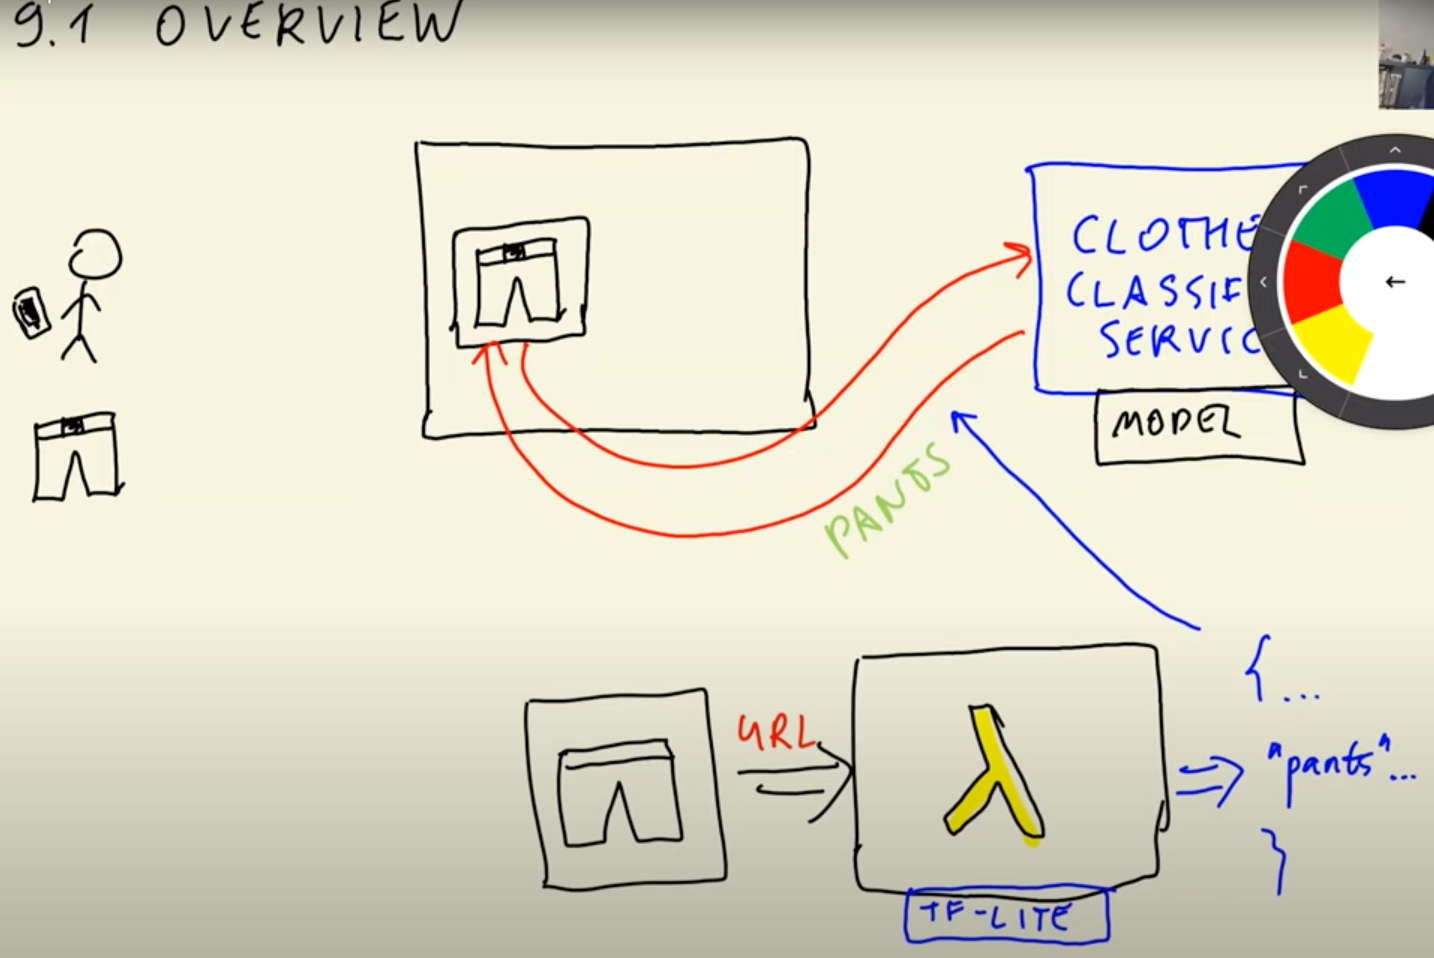 9.1 OVERVIEW
CLOTHE
CLASSIF
SERVIC
MODEL
PANTS
URL
{...
"pants"...
}
λ
TF-LITE